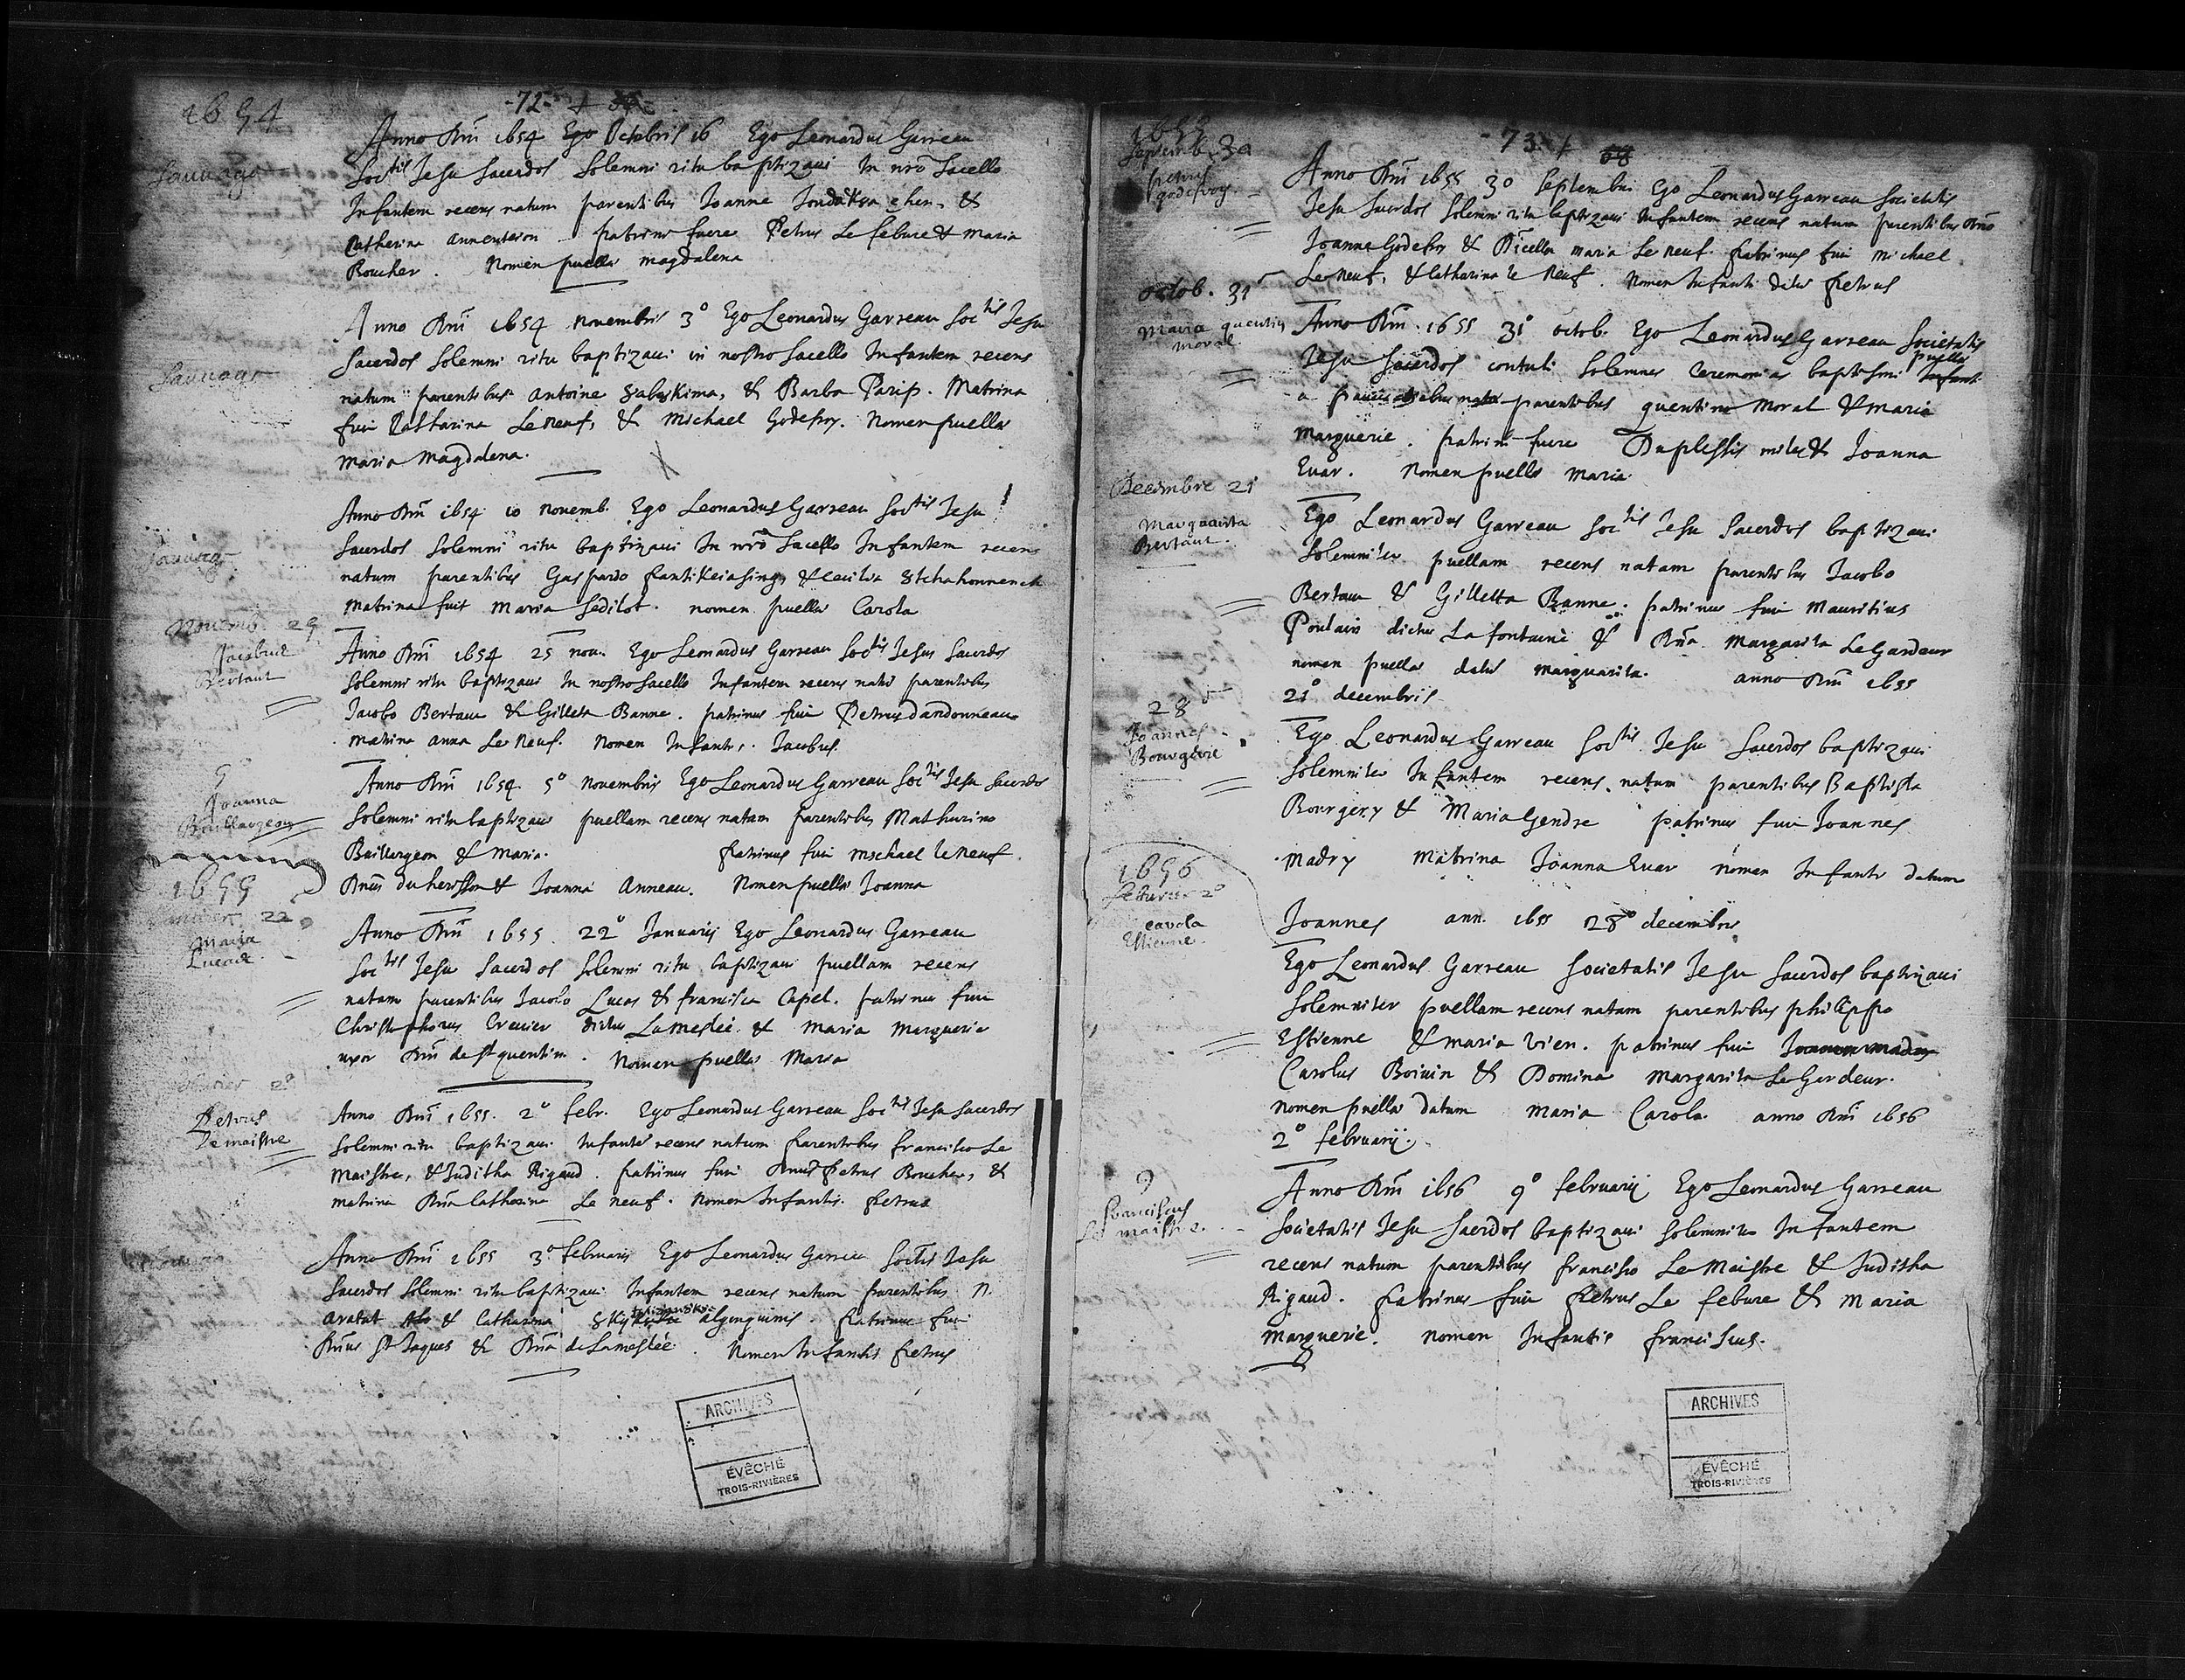 1654
-72-
Sauvage
Anno Dni 1654 Ego Octobris 16 Ego Leonardus Garreau
Soctis Jesu sacerdos solemni ritu baptizaui In nro sacello
Infantem recens natum parentibus Joanne &
Catherina Annenteion patrini fuere Petrus Le febure & Maria
Boucher. Nomen puellae magdalena
Sauvage
Anno Dni 1654 novembris 3° Ego Leonardus Garreau Soctis Jesu
sacerdos solemni ritu baptizaui in nostro sacello Infantem recens
natum parentibus Antoine 8abyskima, & Barba Parip. Matrina
fuit Catharina Le neuf, & Michael Godefroy. Nomen puellae
Maria Magdalena.
Sauvage
Anno Dni 1654 10 novemb. Ego Leonardus Garreau Soctis Jesu
sacerdos solemni ritu baptizaui In nro sacello Infantem recens
natum parentibus Gaspardo & Cecilia
Matrina fuit Maria Sedilot. nomen puellae Carola
Novemb. 29
Jacobus
Bertaut
Anno Dni 1654 25 nou. Ego Leonardus Garreau Soctis Jesus sacerdos
solemni ritu baptizaui In nostro sacello Infantem recens natū parentibus
Jacobo Bertau & Gilleta Banne. patrinus fuit Petrus Dandonneau
matrina Anna Le Neuf. Nomen Infantis. Jacobus.
5°
Joanna
Baillargeon
Anno Dni 1654. 5° novembris Ego Leonardus Garreau Soctis Jesu sacerdos
solemni ritu baptizaui puellam recens natam parentibus Mathurino
Baillargeon & Maria. patrinus fuit Michael le neuf
Dnus du herisson & Joanna Anneau. Nomen puellae Joanna
1655
Janvier 22
Maria
Lucas
Anno Dni 1655. 22° Januarij Ego Leonardus Garreau
Soctis Jesu Sacerdos solemni ritu baptizaui puellam recens
natam parentibus Jacobo Lucas & francisca Capel. patrinus fuit
Christophorus Crevier dictus La meslée & Maria Marguerie
uxor Dni de St quentin. Nomen puellae Maria
2°
Petrus
Le maistre
Anno Dni 1655. 2° febr. Ego Leonardus Garreau Soctis Jesu sacerdos
solemni ritu baptizaui Infantē recens natum parentibus francisco Le
Maistre, & Juditha Rigaud. patrinus fuit Dnus Petrus Boucher, &
matrina Dna Catharina Le neuf. Nomen Infantis. Petrus
Anno Dni 1655 3° februarij Ego Leonardus Garreau Soctis Jesu
sacerdos solemni ritu baptizaui Infantem recens natum parentibus N.
aratat & Catharina algonquinis. Patrinus fuit
Dnus St Jaques & Dna de La meslée. Nomen Infantis Petrus
ARCHIVES
ÉVÊCHÉ
TROIS-RIVIÈRES
-73-
68
1655
Septemb. 30
petrus
godefroy.
Anno Dni 1655 30 Septembri Ego Leonardus Garreau Societatis
Jesu sacerdos solemni ritu baptizaui Infantem recens natum parentibus Dno
Joanne Godefroy & Dicella maria Le neuf. Patrinus fuit Michael
Le neuf, & Catharina le neuf. Nomen Infanti datū Petrus
octob. 31
Maria quentin
moral
Anno Dni. 1655 31° octob. Ego Leonardus Garreau Societatis
Jesu sacerdos contuli solemnes ceremonias baptismi Infanti puellae
a paucis diebus natae parentibus quentino Moral & Maria
Marguerie. patrini fuere Duplessis miles & Joanna
Evar. Nomen puellae Maria
Decembre 21
Marguarita
Bertaut.
Ego Leonardus Garreau Soctis Jesu sacerdos baptizaui
solemniter puellam recens natam parentibus Jacobo
Bertau & Gilletta Banne. patrinus fuit Mauritius
Poulain dictus La fontaine & Dna Margarita Le Gardeur
nomen puellae datū marguarita. anno Dni 1655
21° decembris
28
Joannes
Bourgerie
Ego Leonardus Garreau Soctis Jesu sacerdos baptizaui
solemniter Infantem recens natum parentibus Baptista
Bourgery & Maria Gendre patrinus fuit Joannes
Madry Matrina Joanna Evar nomen Infanti datum
Joannes ann. 1655 28° decembris
1656
2°
Carola
Estienne.
Ego Leonardus Garreau Societatis Jesu sacerdos baptizaui
solemniter puellam recens natam parentibus philippo
Estienne & maria Vien. patrinus fuit Joannes madry
Carolus Boivin & Domina Margarita Le Gardeur.
nomen puellae datum Maria Carola. anno Dni 1656
2° februarij.
9
Franciscus
Le maistre.
Anno Dni 1656 9° februarij Ego Leonardus Garreau
Societatis Jesu sacerdos baptizaui solemniter Infantem
recens natum parentibus francisco Le Maistre & Juditha
Rigaud. Patrinus fuit Petrus Le febure & Maria
Marguerie. Nomen Infantis franciscus.
ARCHIVES
ÉVÊCHÉ
TROIS-RIVIÈRES